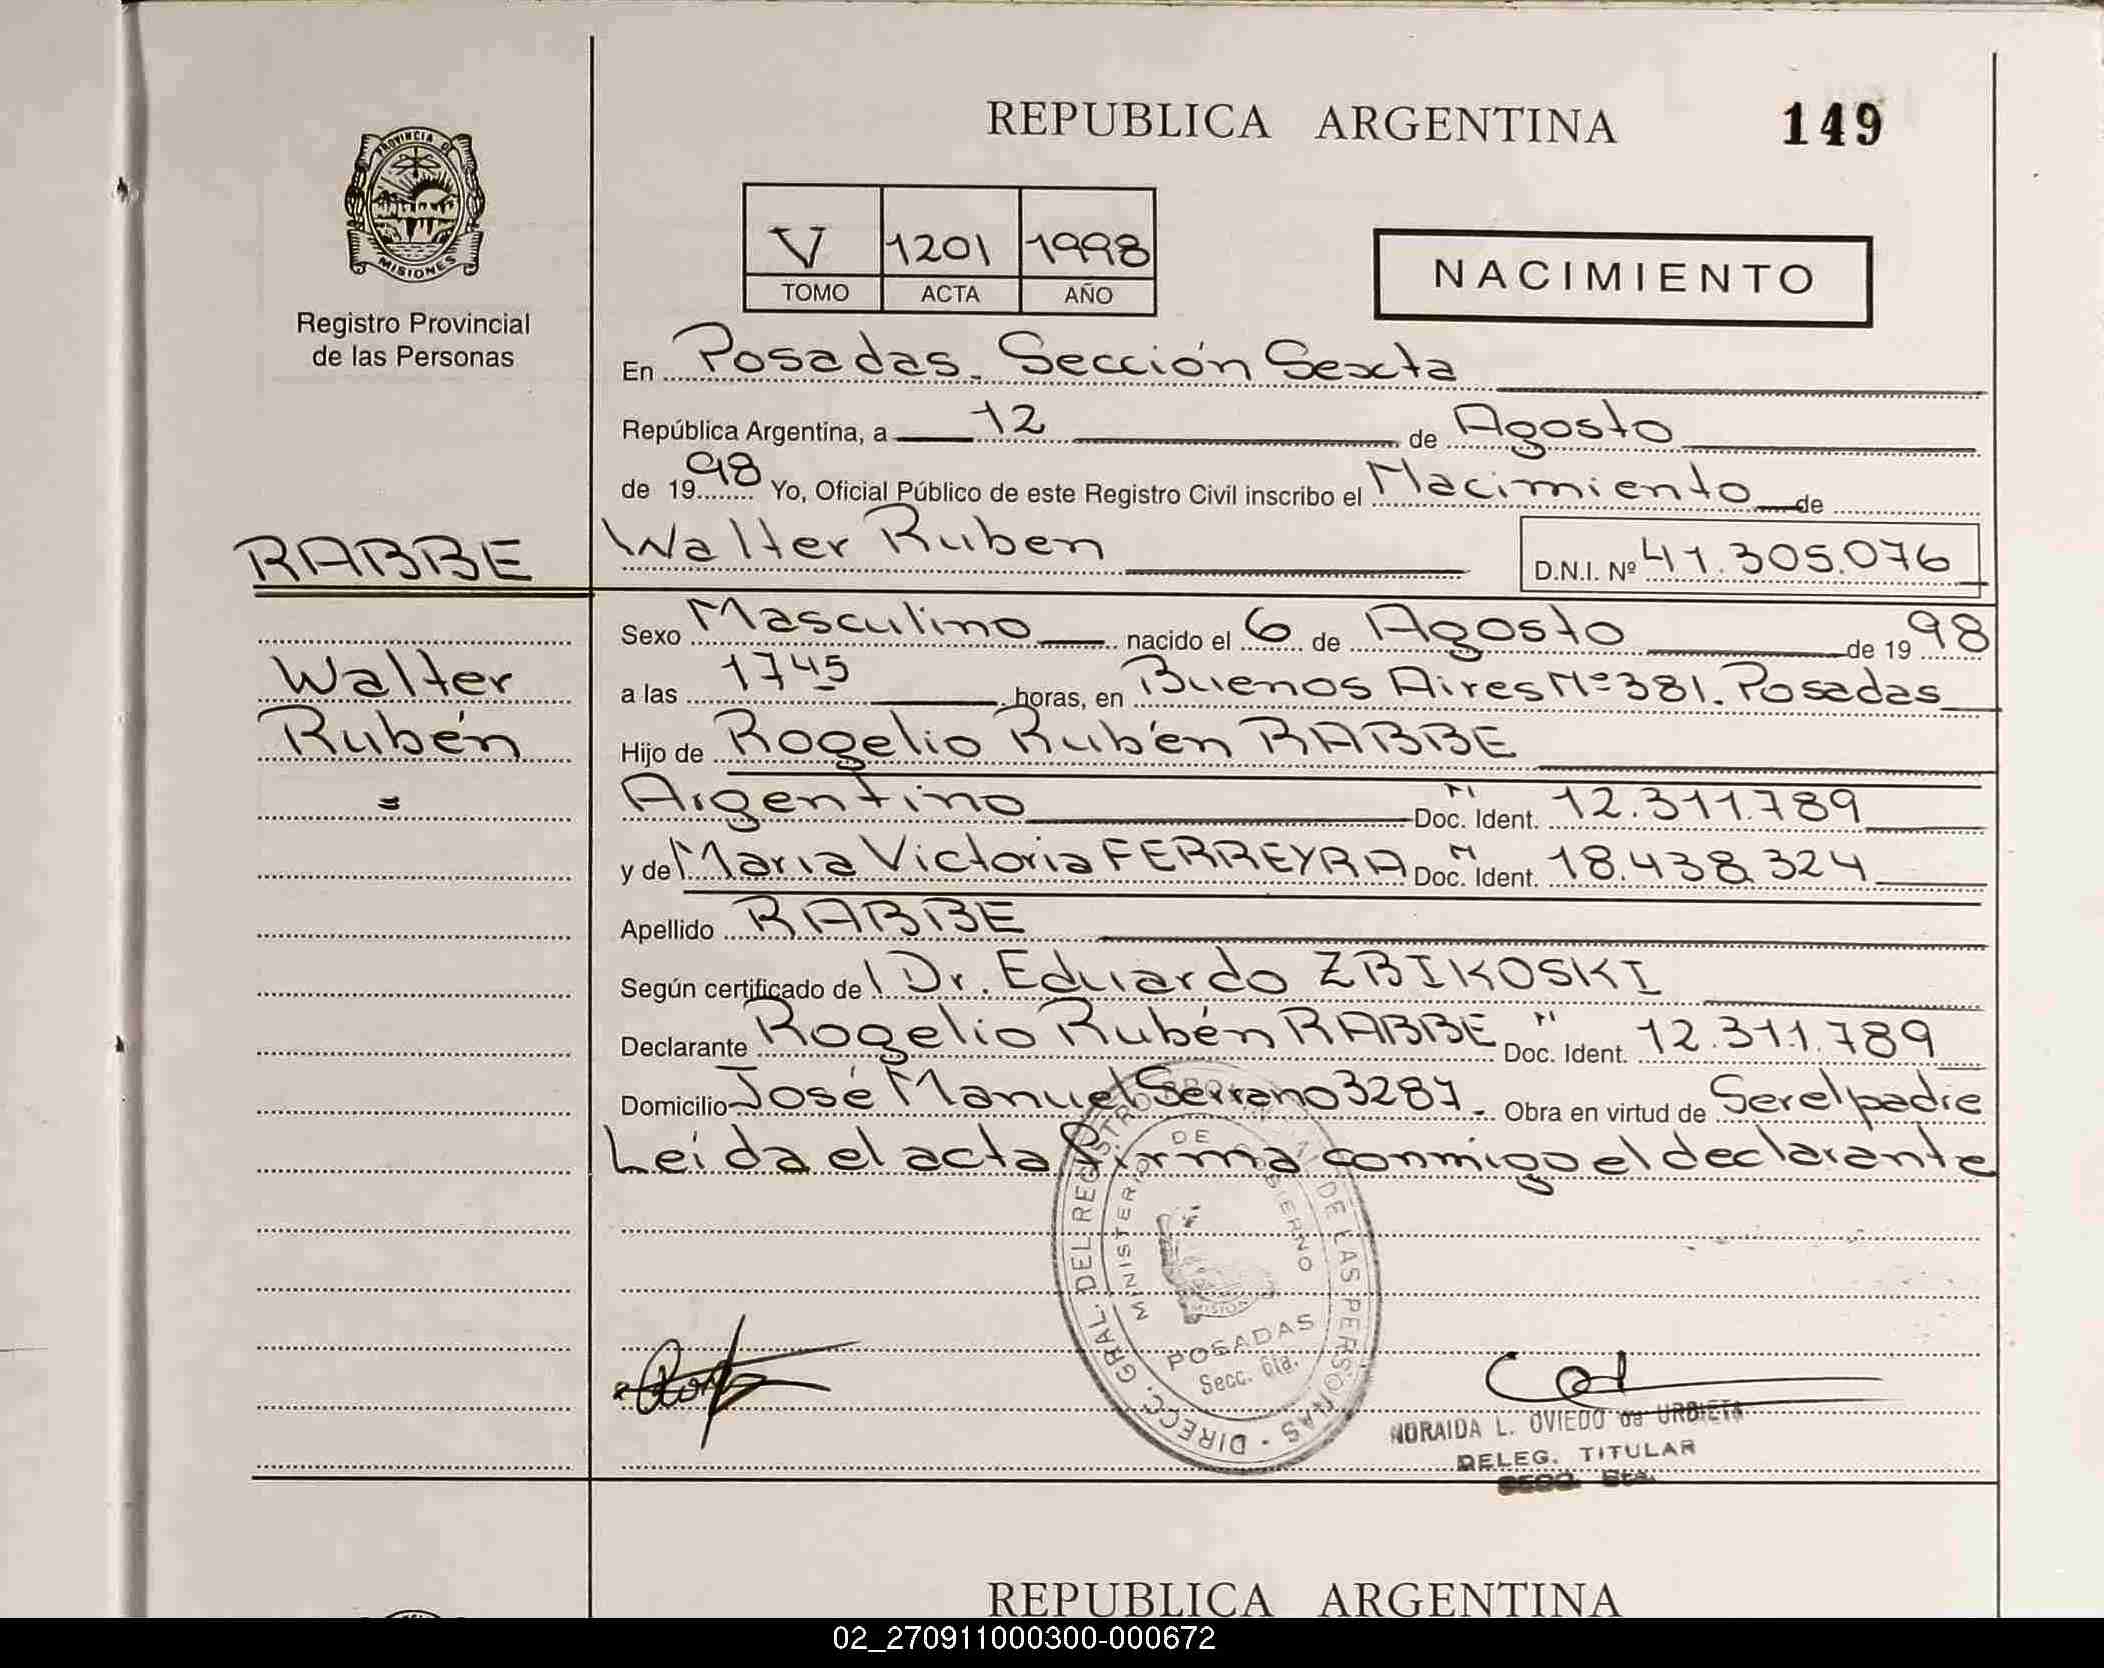 REPUBLICA ARGENTINA
149
PROVINCIA D
MISIONES
Registro Provincial
de las Personas
V 1201 1998
TOMO ACTA AÑO
NACIMIENTO
En Posadas. Sección Sexta
República Argentina, a 12 de Agosto
de 1998 Yo, Oficial Público de este Registro Civil inscribo el Nacimiento de
RABBE
Walter Ruben D.N.I. Nº 41.305.076
Sexo Masculino nacido el 6 de Agosto de 1998
Walter
a las 1745 horas, en Buenos Aires Nº 381. Posadas
Rubén
Hijo de Rogelio Rubén RABBE
=
Argentino Doc. Ident. M 12.311.789
y de María Victoria FERREYRA Doc. Ident. M 18.438.324
Apellido RABBE
Según certificado de Dr. Eduardo ZBIKOSKI
Declarante Rogelio Rubén RABBE Doc. Ident. M 12.311.789
Domicilio José Manuel Serrano 3287 Obra en virtud de Ser el padre
Leída el acta firma conmigo el declarante
DIRECC. GRAL. DEL REGISTRO DE LAS PERSONAS
MINISTERIO DE GOBIERNO
MISION
POSADAS
Secc. 6ta.
NORAIDA L. OVIEDO de URBIETA
DELEG. TITULAR
SECC. 6ta.
REPUBLICA ARGENTINA
02_270911000300-000672